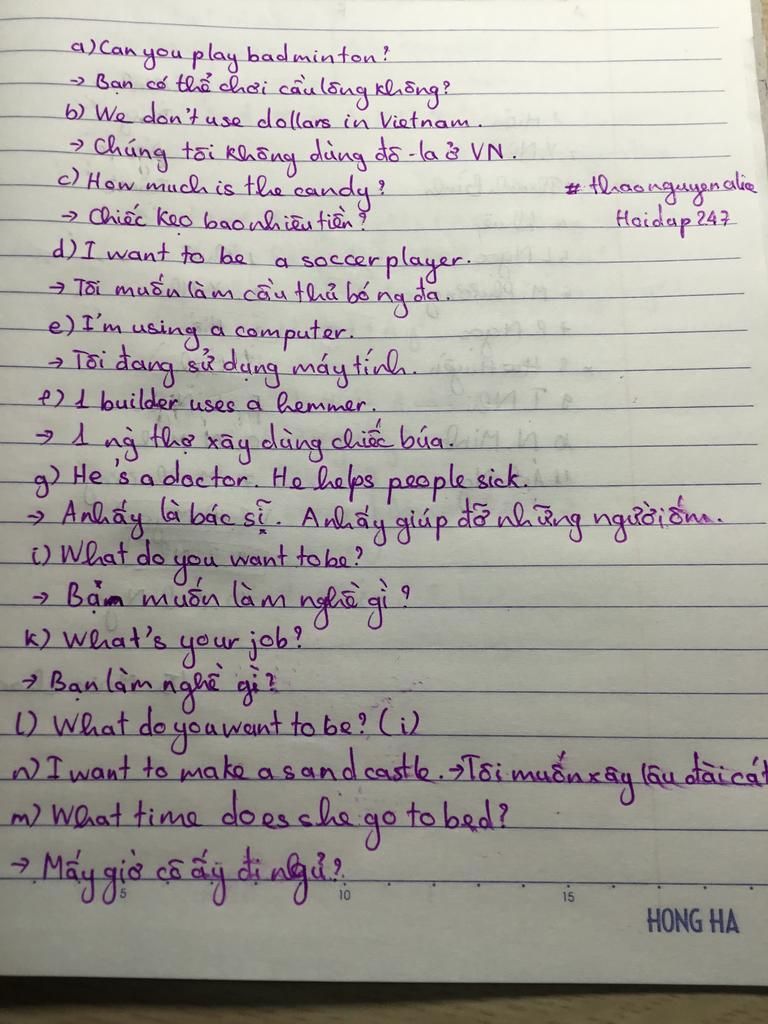 a) Can you play badminton?
→ Bạn có thể chơi cầu lông không?
b) We don't use dollars in Vietnam.
→ Chúng tôi không dùng đô-la ở VN.
c) How much is the candy?
# thaonguyenalie
→ Chiếc kẹo bao nhiêu tiền?
Hoidap247
d) I want to be a soccer player.
→ Tôi muốn làm cầu thủ bóng đá.
e) I'm using a computer.
→ Tôi đang sử dụng máy tính.
f) 1 builder uses a hemmer.
→ 1 ng̀ thợ xây dùng chiếc búa.
g) He's a doctor. He helps people sick.
→ Anh ấy là bác sĩ. Anh ấy giúp đỡ những người ốm.
i) What do you want to be?
→ Bạn muốn làm nghề gì?
k) What's your job?
→ Bạn làm nghề gì?
l) What do you want to be? (i)
n) I want to make a sand castle. → Tôi muốn xây lâu đài cát
m) What time does she go to bed?
→ Mấy giờ cô ấy đi ngủ?
5 10 15
HONG HA